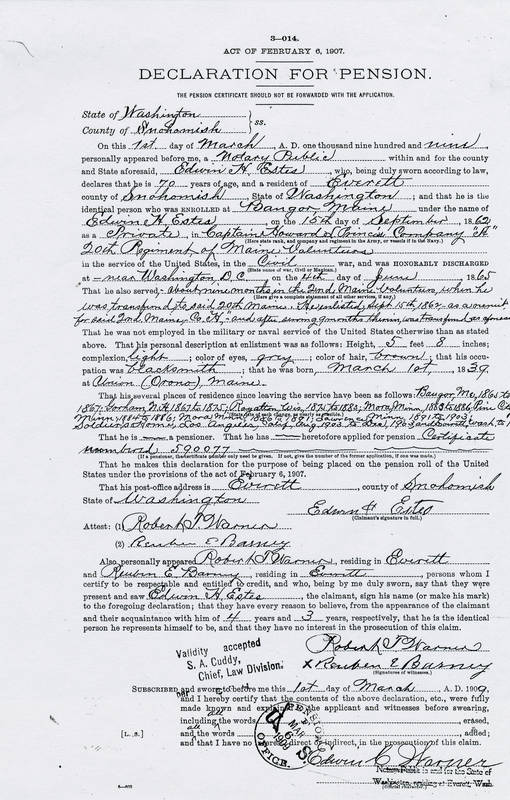 3—014.
ACT OF FEBRUARY 6, 1907.
DECLARATION FOR PENSION.
THE PENSION CERTIFICATE SHOULD NOT BE FORWARDED WITH THE APPLICATION.
State of Washington
County of Snohomish ss.
On this 1st day of March, A. D. one thousand nine hundred and nine,
personally appeared before me, a Notary Public within and for the county
and State aforesaid, Edwin H. Estes, who, being duly sworn according to law,
declares that he is 70 years of age, and a resident of Everett
county of Snohomish, State of Washington; and that he is the
identical person who was ENROLLED at Bangor Maine under the name of
Edwin H. Estes, on the 15th day of September, 1862
as a Private, in Captain Howard L Princes Company "H"
(Here state rank, and company and regiment in the Army, or vessels if in the Navy.)
20th Regiment of Maine Volunteers
in the service of the United States, in the Civil war, and was HONORABLY DISCHARGED
(State name of war, Civil or Mexican.)
at near Washington, D.C., on the 4th day of June, 1865
That he also served about nine months in the 2nd Maine Volunteers, when he
(Here give a complete statement of all other services, if any.)
was transferred to said 20th Maine. He enlisted Sept 15th 1862 as a recruit
for said 2nd Maine, Co. H, and after serving 9 months therein, was transferred as aforesaid
That he was not employed in the military or naval service of the United States otherwise than as stated
above. That his personal description at enlistment was as follows: Height, 5 feet 8 inches;
complexion, light; color of eyes, grey; color of hair, brown; that his occu-
pation was blacksmith; that he was born, March 1st, 1839
at (Orono) Maine.
That his several places of residence since leaving the service have been as follows: Bangor, Me, 1865 to
1867; Gorham N.H. 1867 to 1875; Wis, 1875 to 1883; Mora, Minn, 1883 to 1886; Pine City
(State date of each change, as nearly as possible.)
Soldiers Home, Los Angeles, Calif,
That he is a pensioner. That he has heretofore applied for pension Certificate
numbered 590077
(If a pensioner, the certificate number only need be given. If not, give the number of the former application, if one was made.)
That he makes this declaration for the purpose of being placed on the pension roll of the United
States under the provisions of the act of February 6, 1907.
That his post-office address is Everett, county of Snohomish
State of Washington
Edwin H Estes
(Claimant's signature in full.)
Attest: (1) Robert T Warner
(2) Reuben E Barney
Also, personally appeared Robert T Warner, residing in Everett
and Reuben E. Barney, residing in Everett, persons whom I
certify to be respectable and entitled to credit, and who, being by me duly sworn, say that they were
present and saw Edwin H. Estes, the claimant, sign his name (or make his mark)
to the foregoing declaration; that they have every reason to believe, from the appearance of the claimant
and their acquaintance with him of 4 years and 3 years, respectively, that he is the identical
person he represents himself to be, and that they have no interest in the prosecution of this claim.
Robert T Warner
x Reuben E Barney
(Signatures of witnesses.)
Validity accepted
S. A. Cuddy,
Chief, Law Division.
SUBSCRIBED and sworn to before me this 1st day of March A. D. 1909,
and I hereby certify that the contents of the above declaration, etc., were fully
made known and explained to the applicant and witnesses before swearing,
including the words erased,
[L. S.] and the words added;
and that I have no interest, direct or indirect, in the prosecution of this claim.
PENSION OFFICE
MAR 6 1909
U S
Edwin C Warner
Notary Public in and for the State of
Washington, residing at Everett, Wash.